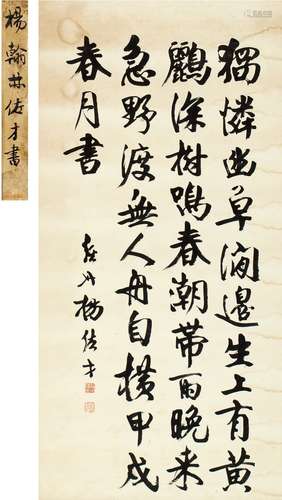 獨憐幽草澗邊生上有黃
鸝深樹鳴春潮帶雨晚來
急野渡無人舟自橫甲戌
春月書
楊佐才
楊翰林佐才書